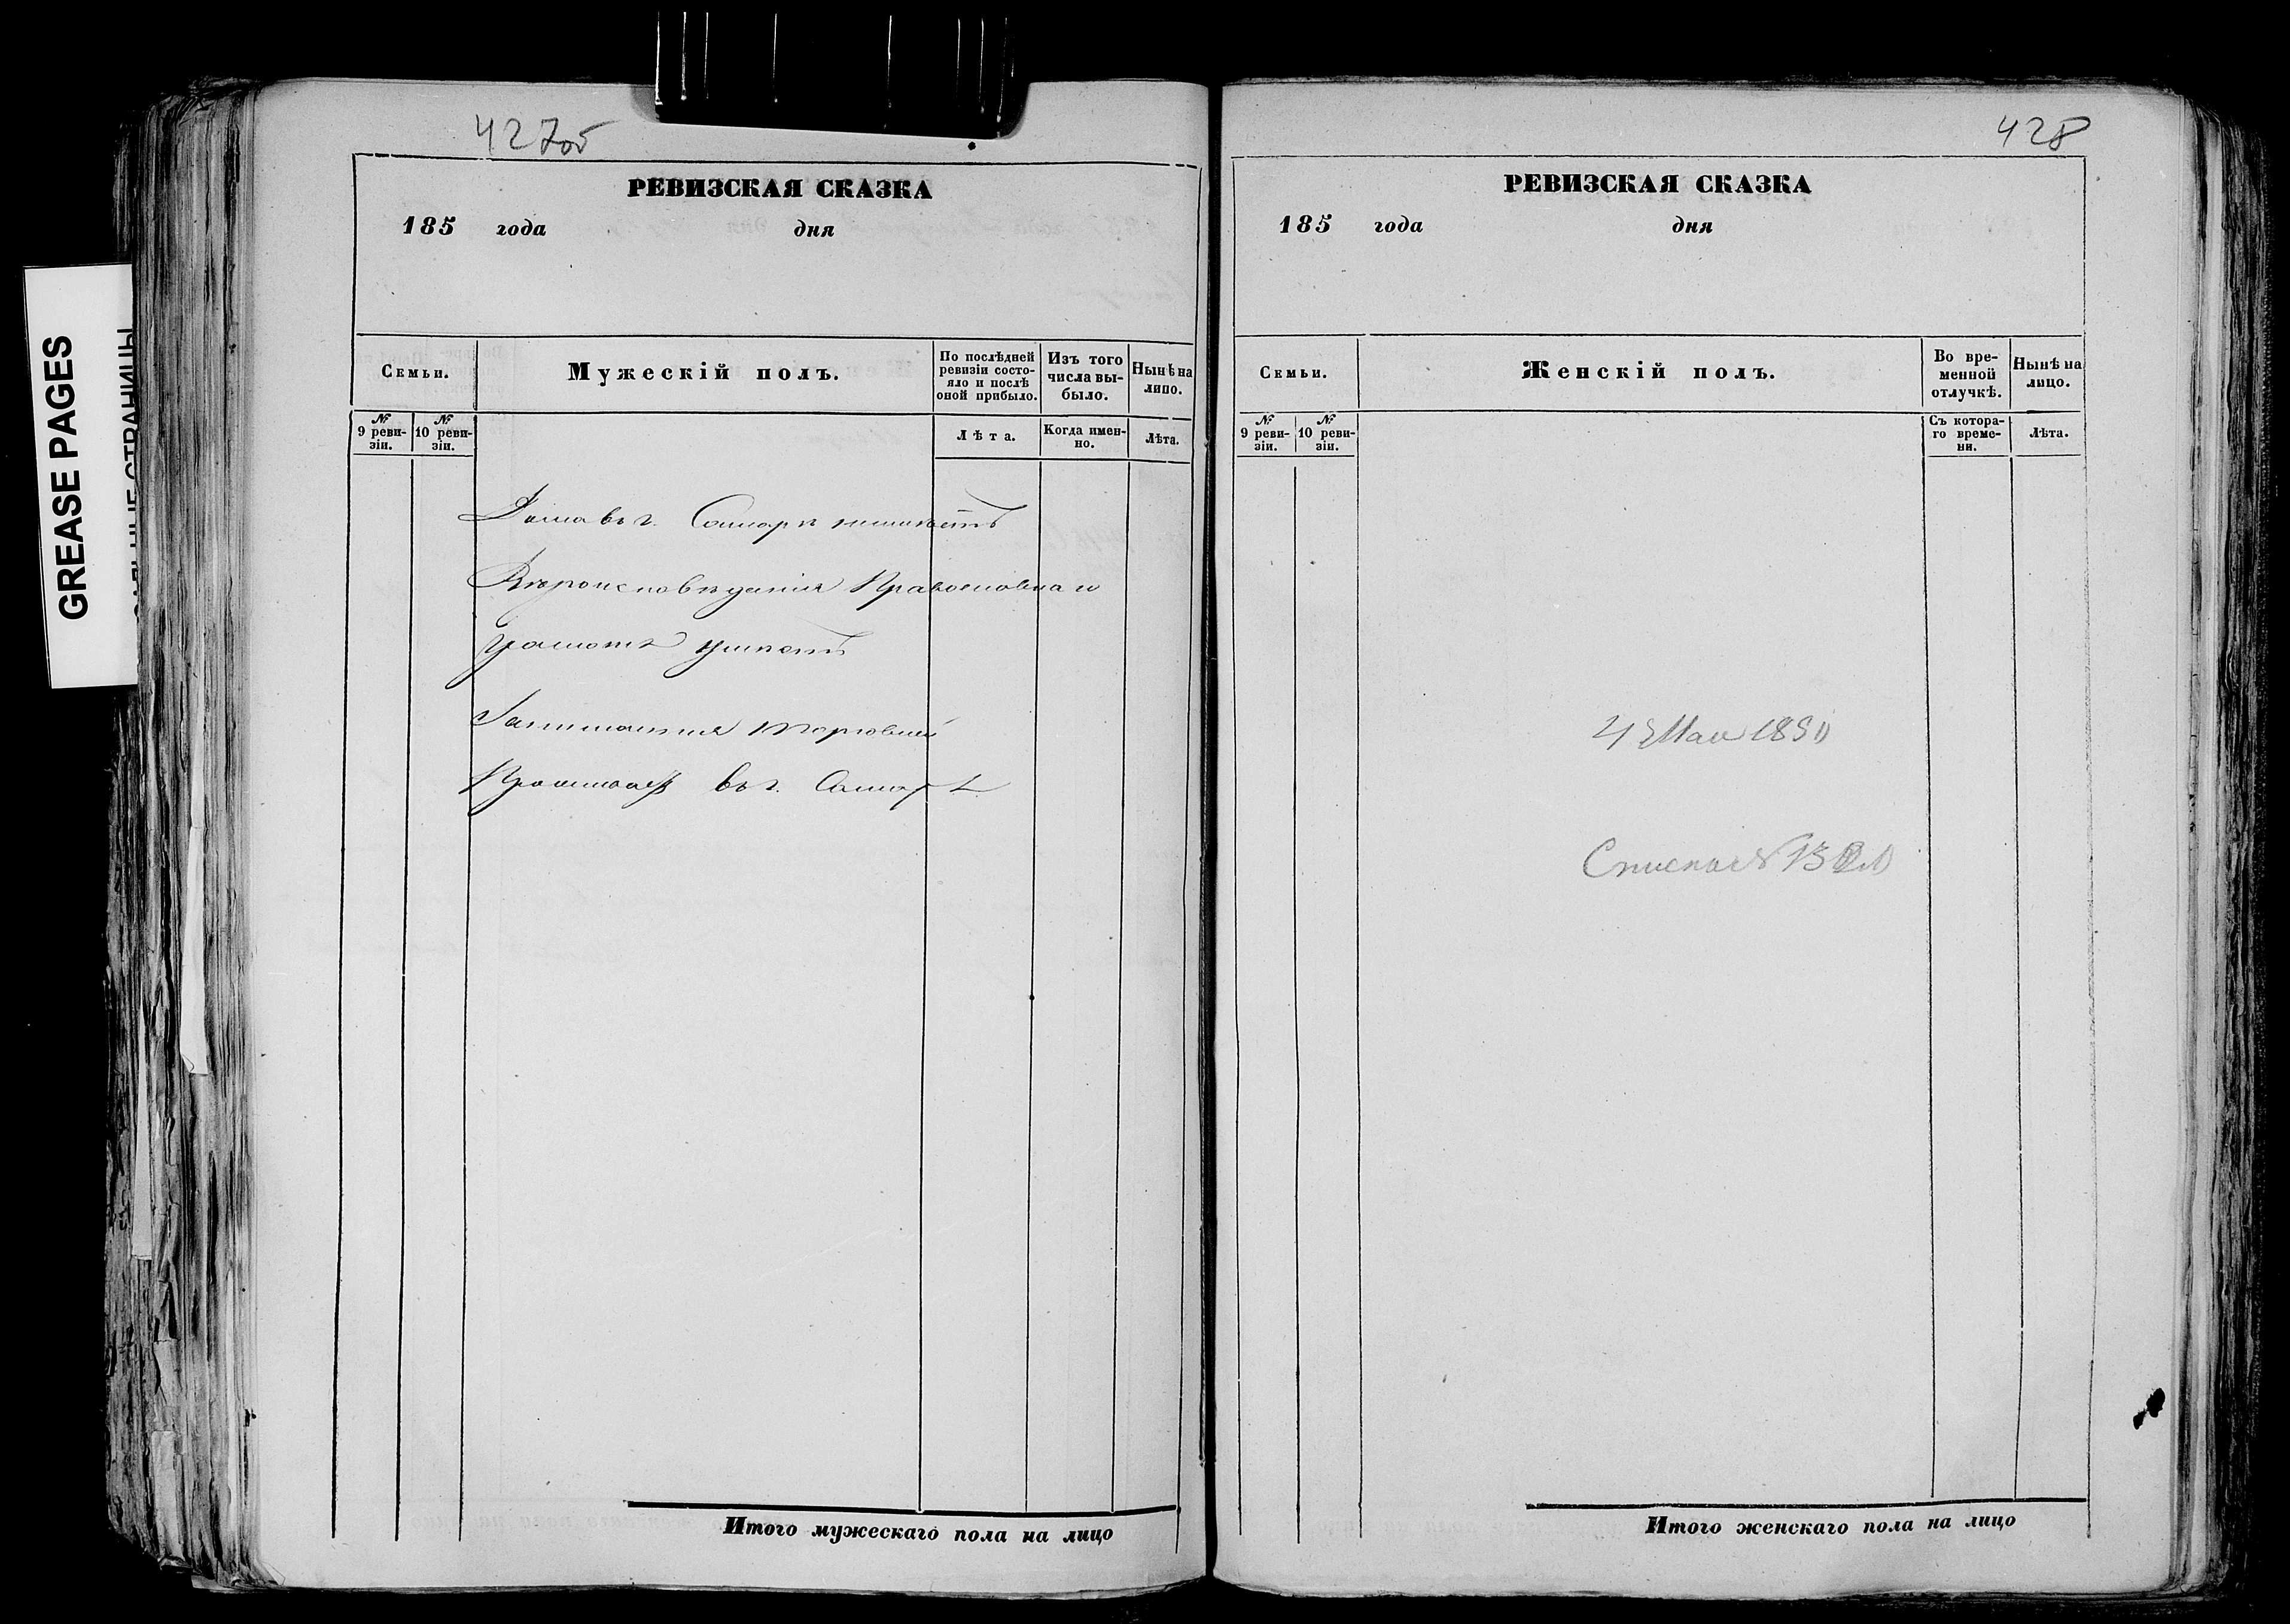 GREASE PAGES
427об
РЕВИЗСКАЯ СКАЗКА
185 года дня
Семьи.
Мужескій полъ.
По послѣдней ревизіи состояло и послѣ оной прибыло.
Изъ того числа выбыло.
Нынѣ на лицо.
№ 9 ревизіи.
№ 10 ревизіи.
Лѣта.
Когда именно.
Лѣта.
Дома въ г. Самарѣ неимѣетъ
Вѣроисповѣданія Православнаго
Грамотѣ умѣетъ
Занимается торговлей
Проживаетъ въ г. Самарѣ
Итого мужескаго пола на лицо
428
РЕВИЗСКАЯ СКАЗКА
185 года дня
Семьи.
Женскій полъ.
Во временной отлучкѣ.
Нынѣ на лицо.
№ 9 ревизіи.
№ 10 ревизіи.
Съ котораго времени.
Лѣта.
Мая
Итого женскаго пола на лицо